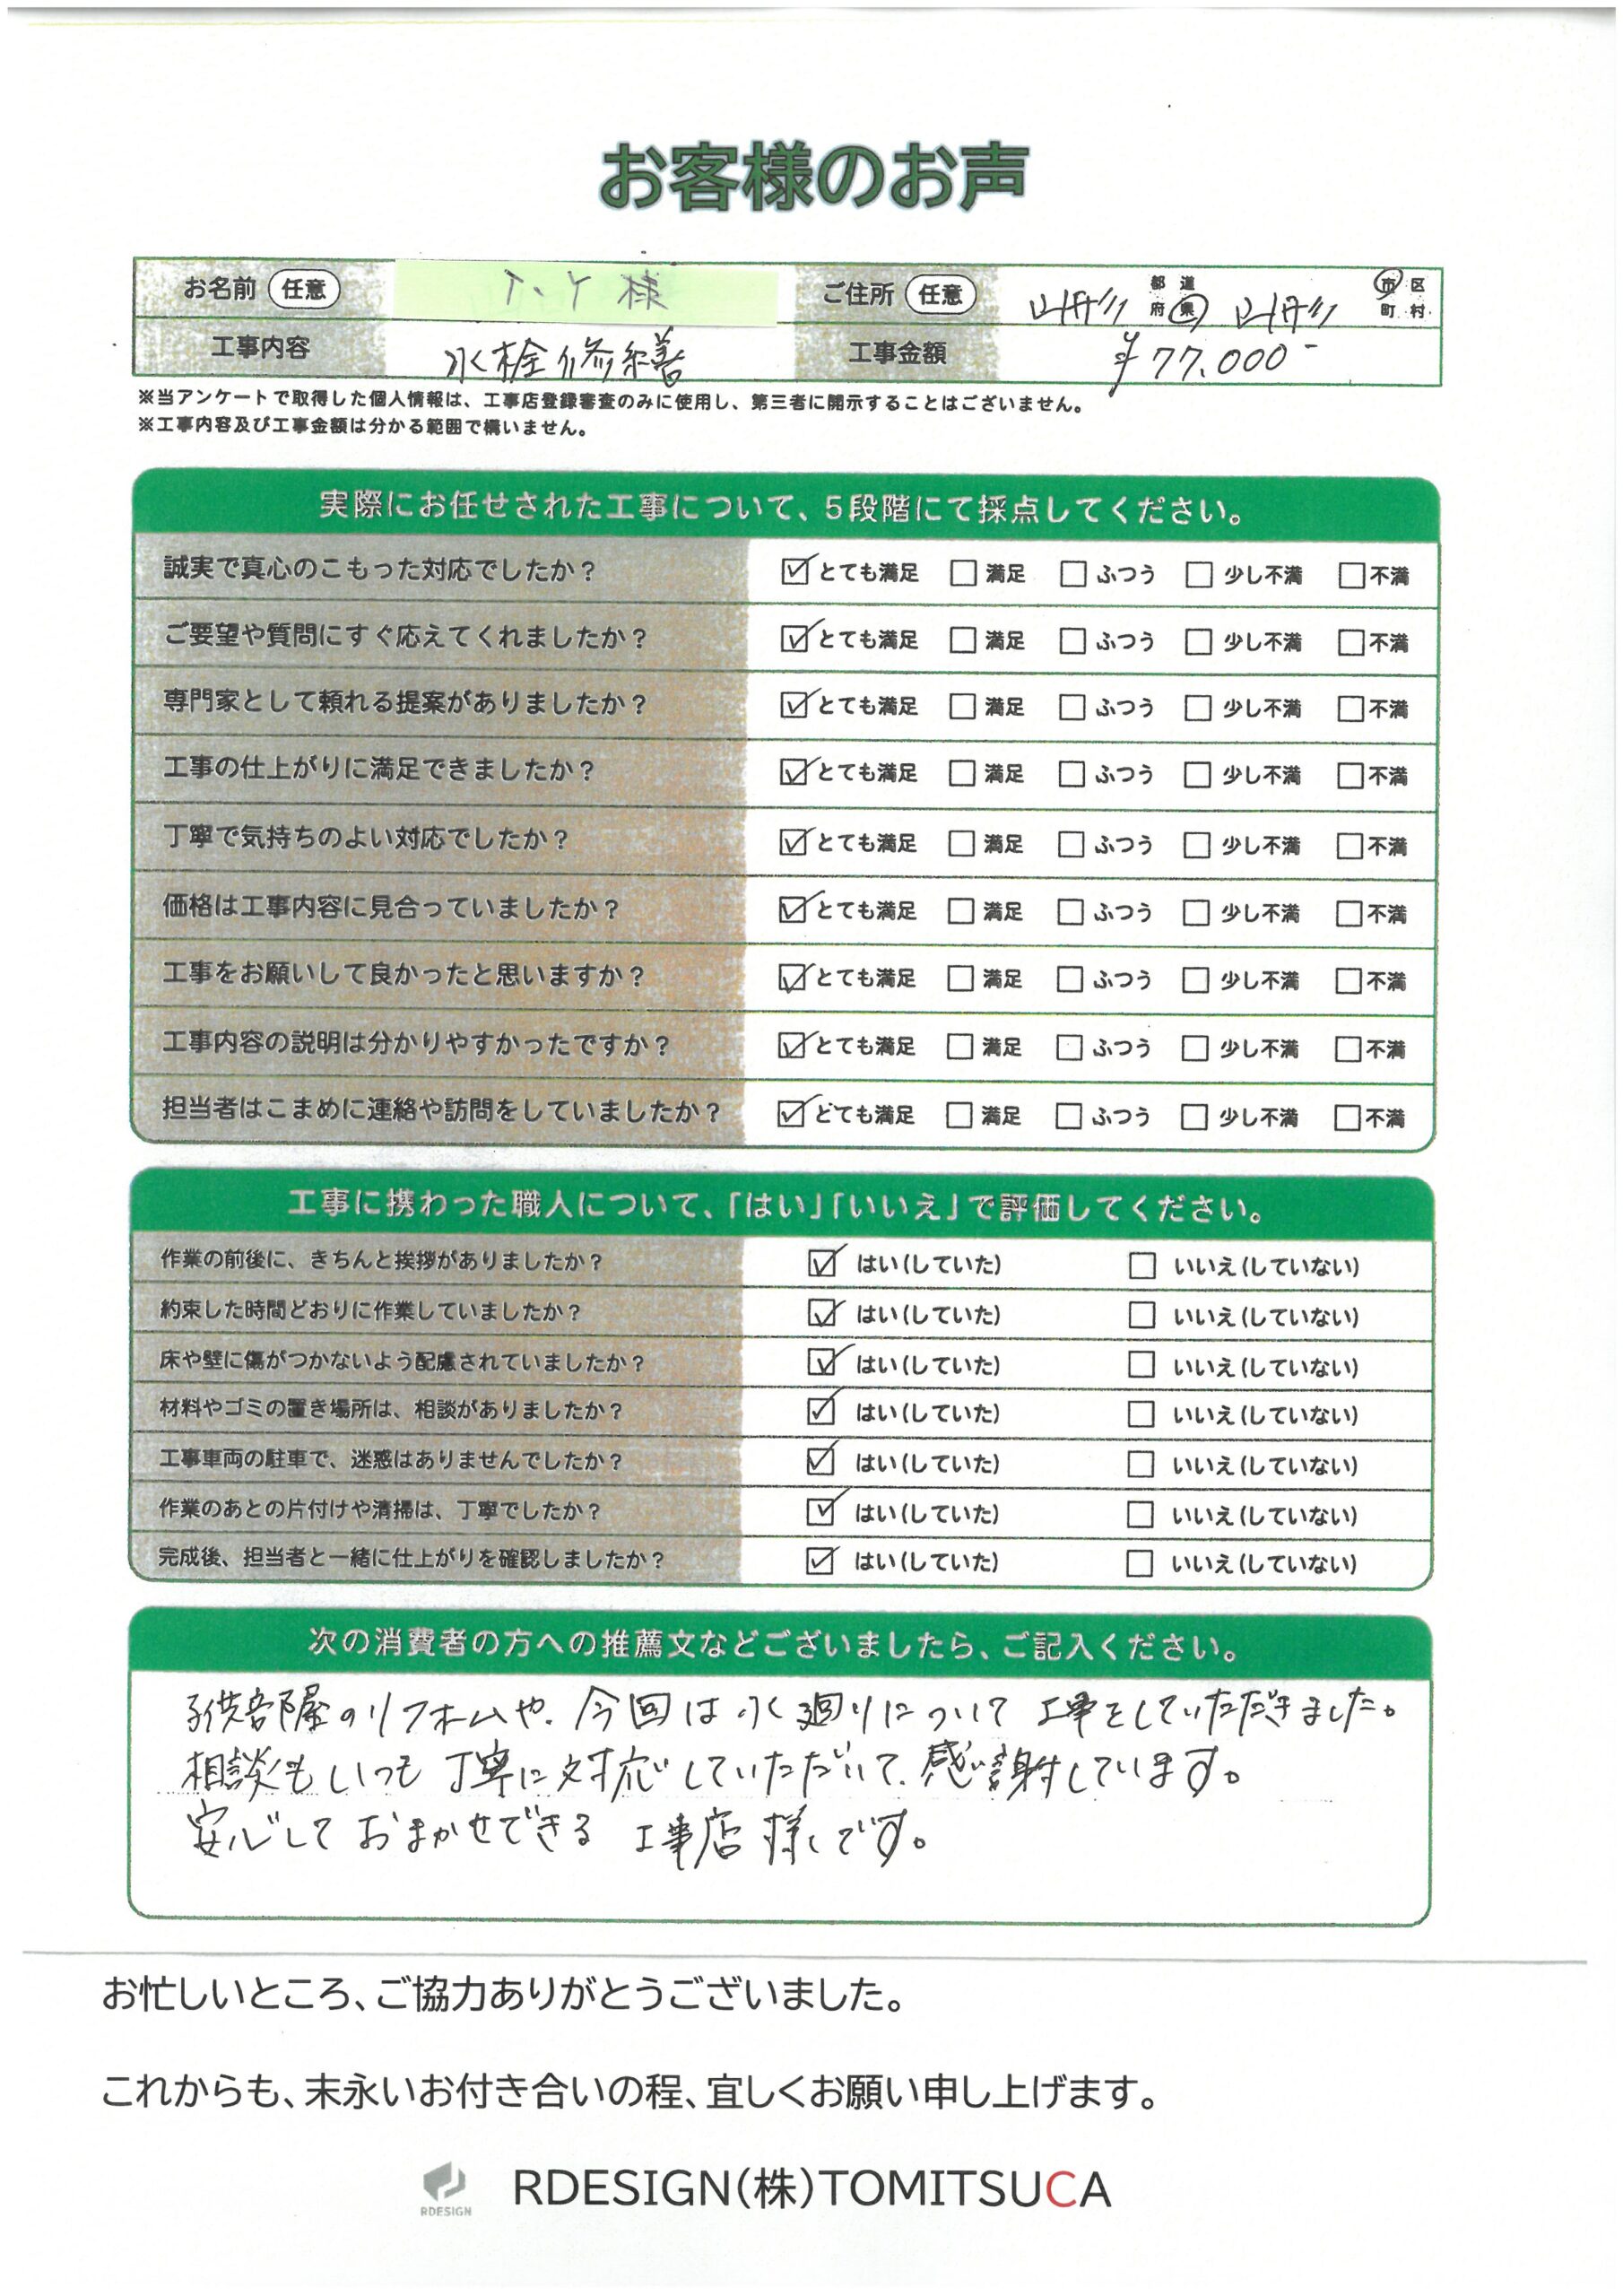 お客様のお声
お名前 任意 T.Y 様 ご住所 任意 山形 都道府県 山形 市区町村
工事内容 水栓修繕 工事金額 ¥77.000-
※当アンケートで取得した個人情報は、工事店登録審査のみに使用し、第三者に開示することはございません。
※工事内容及び工事金額は分かる範囲で構いません。
実際にお任せされた工事について、5段階にて採点してください。
誠実で真心のこもった対応でしたか? ☑とても満足 □満足 □ふつう □少し不満 □不満
ご要望や質問にすぐ応えてくれましたか? ☑とても満足 □満足 □ふつう □少し不満 □不満
専門家として頼れる提案がありましたか? ☑とても満足 □満足 □ふつう □少し不満 □不満
工事の仕上がりに満足できましたか? ☑とても満足 □満足 □ふつう □少し不満 □不満
丁寧で気持ちのよい対応でしたか? ☑とても満足 □満足 □ふつう □少し不満 □不満
価格は工事内容に見合っていましたか? ☑とても満足 □満足 □ふつう □少し不満 □不満
工事をお願いして良かったと思いますか? ☑とても満足 □満足 □ふつう □少し不満 □不満
工事内容の説明は分かりやすかったですか? ☑とても満足 □満足 □ふつう □少し不満 □不満
担当者はこまめに連絡や訪問をしていましたか? ☑とても満足 □満足 □ふつう □少し不満 □不満
工事に携わった職人について、「はい」「いいえ」で評価してください。
作業の前後に、きちんと挨拶がありましたか? ☑はい(していた) □いいえ(していない)
約束した時間どおりに作業していましたか? ☑はい(していた) □いいえ(していない)
床や壁に傷がつかないよう配慮されていましたか? ☑はい(していた) □いいえ(していない)
材料やゴミの置き場所は、相談がありましたか? ☑はい(していた) □いいえ(していない)
工事車両の駐車で、迷惑はありませんでしたか? ☑はい(していた) □いいえ(していない)
作業のあとの片付けや清掃は、丁寧でしたか? ☑はい(していた) □いいえ(していない)
完成後、担当者と一緒に仕上がりを確認しましたか? ☑はい(していた) □いいえ(していない)
次の消費者の方への推薦文などございましたら、ご記入ください。
子供部屋のリフォームや、今回は水廻りについて工事をしていただきました。
相談もいつも丁寧に対応していただいて、感謝しています。
安心しておまかせできる工事店様です。
お忙しいところ、ご協力ありがとうございました。
これからも、末永いお付き合いの程、宜しくお願い申し上げます。
RDESIGN
RDESIGN(株)TOMITSUCA